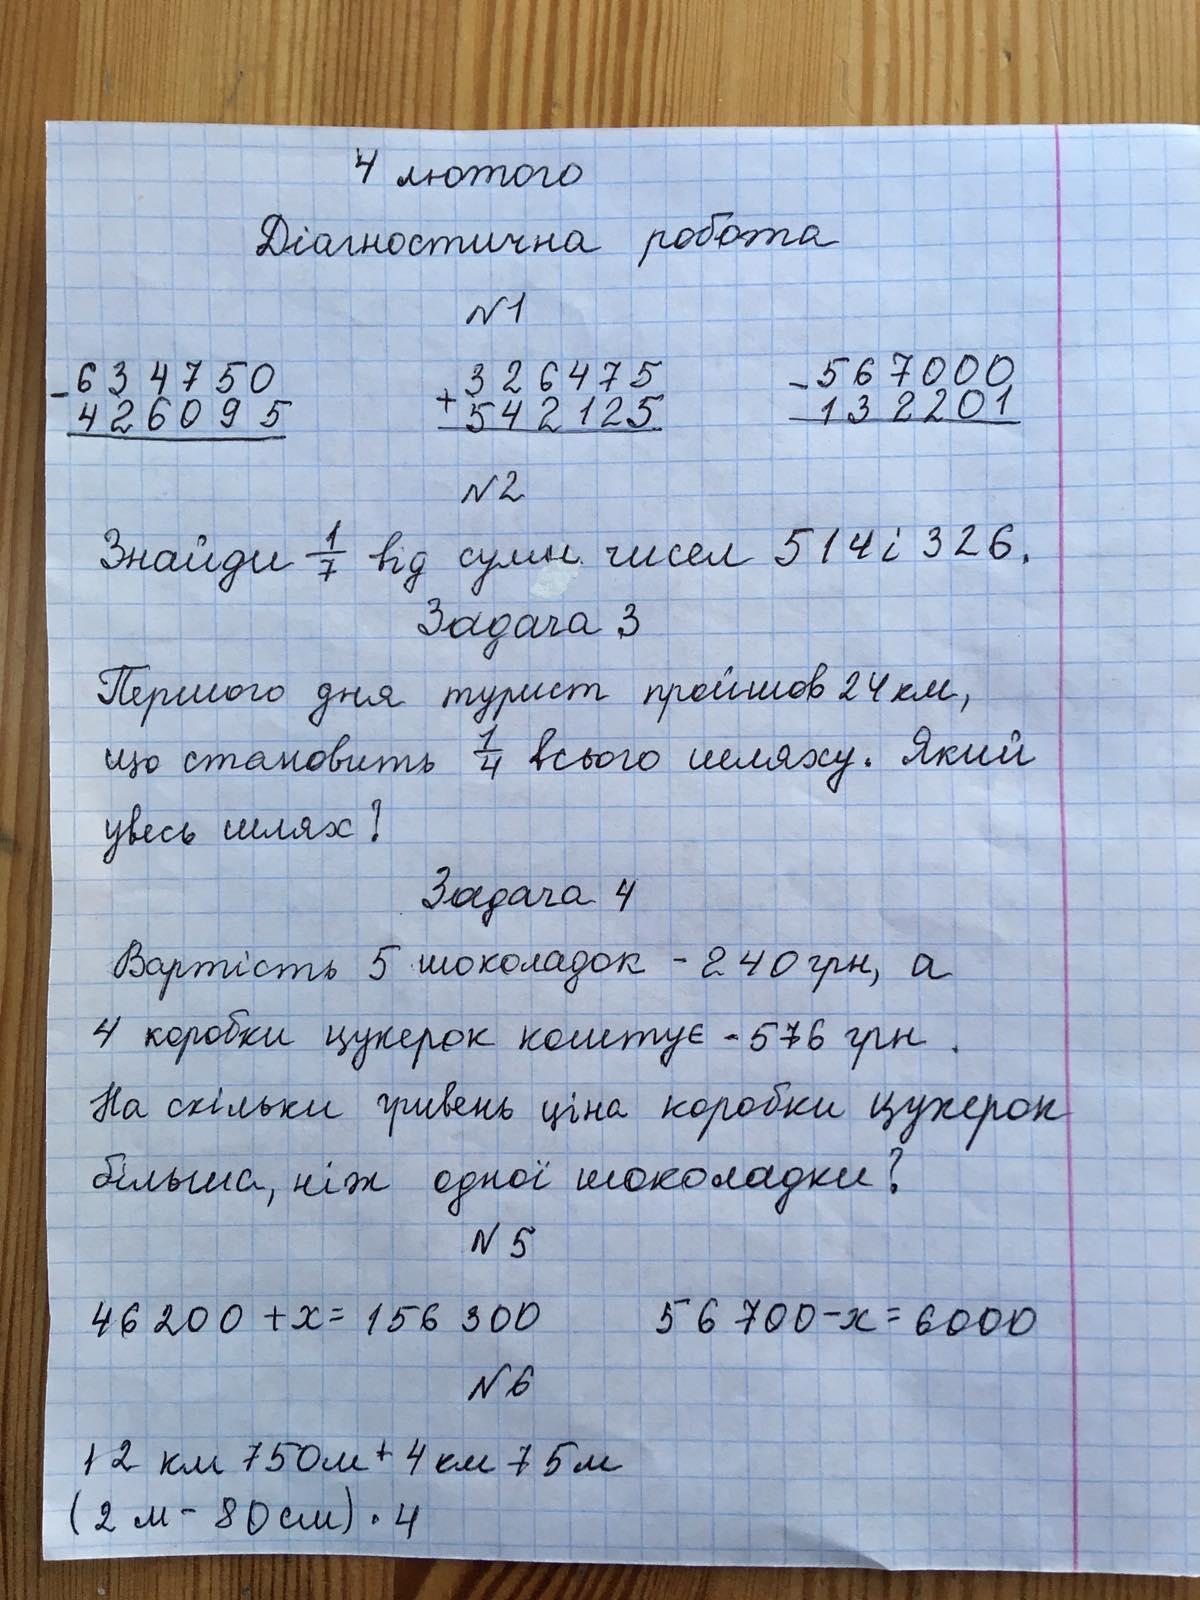 4 лютого
Діагностична робота
N1
- 634750 + 326475 - 567000
426095 542125 132201
N2
Знайди 1/7 від суми чисел 514 і 326.
Задача 3
Першого дня турист пройшов 24 км,
що становить 1/4 всього шляху. Який
увесь шлях?
Задача 4
Вартість 5 шоколадок - 240 грн, а
4 коробки цукерок коштує - 576 грн.
На скільки гривень ціна коробки цукерок
більша, ніж одної шоколадки?
N5
46 200 + x = 156 300 56 700 - x = 6000
N6
12 км 750м + 4 км 75м
(2 м - 80 см) · 4